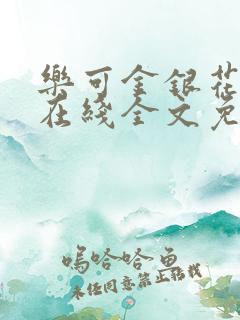 樂可金銀花
在綫全文免
嗚哈哈魚
未经同意禁止转载